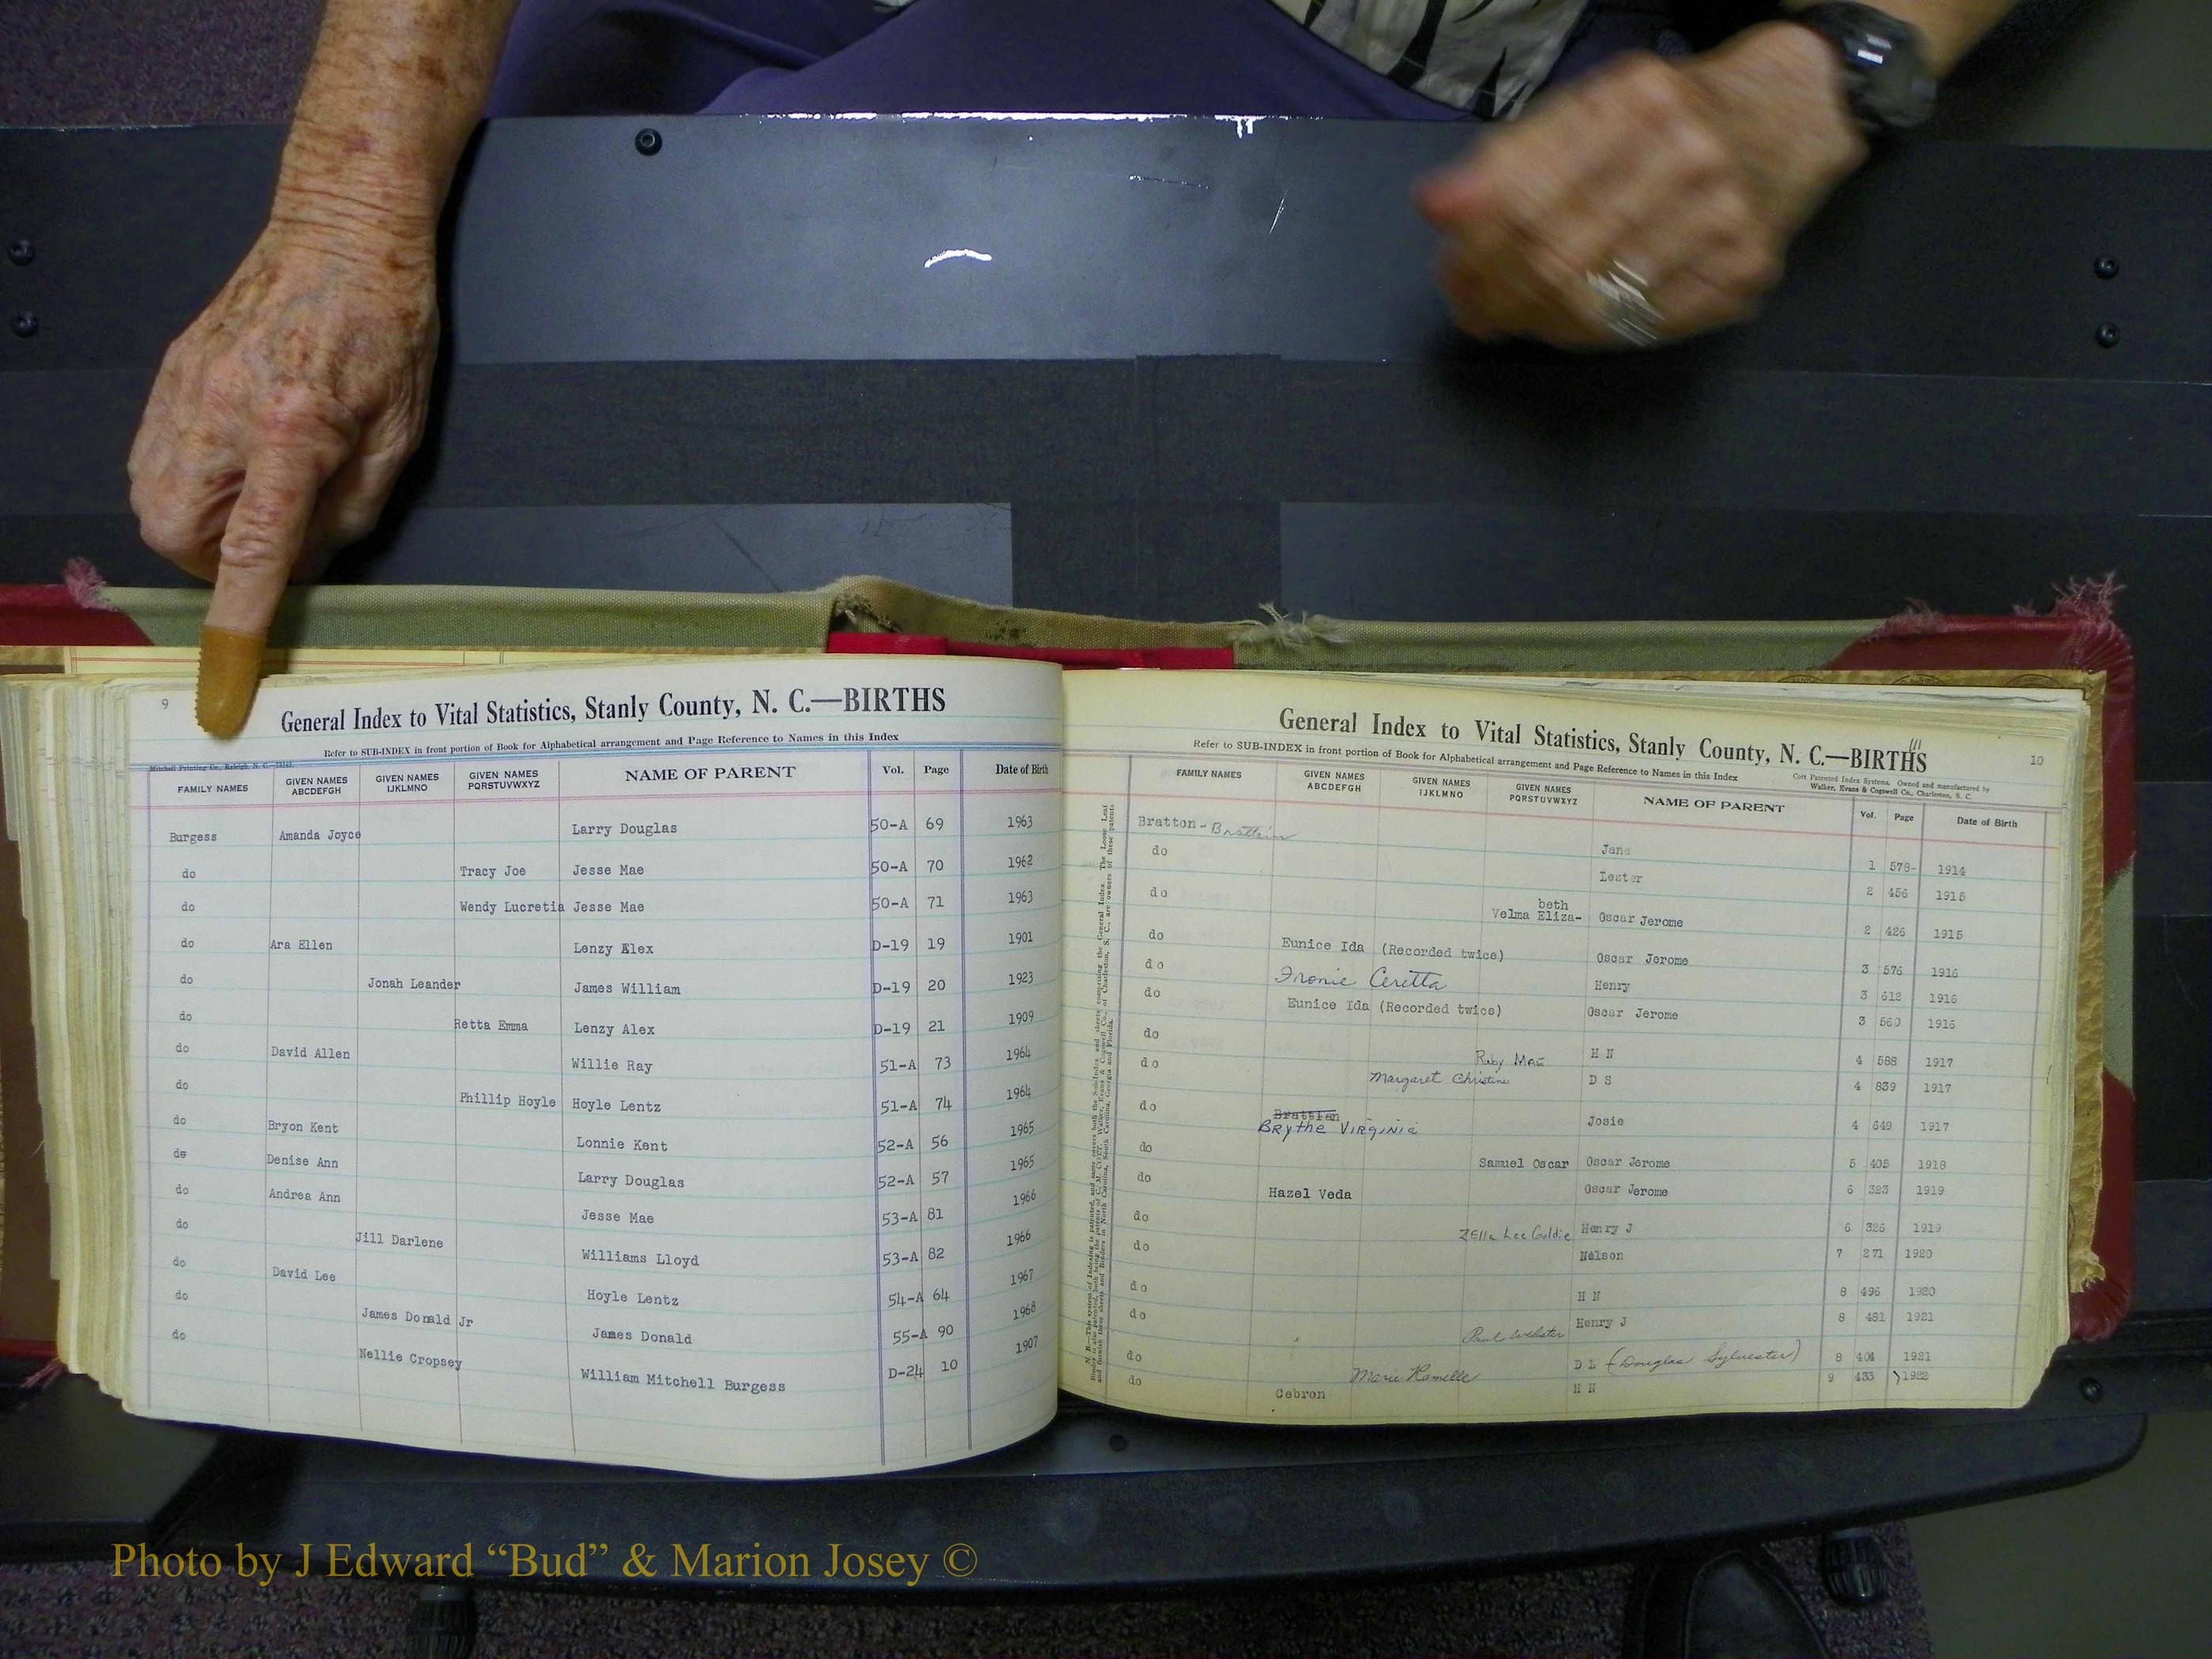 9
General Index to Vital Statistics, Stanly County, N. C.—BIRTHS
Refer to SUB-INDEX in front portion of Book for Alphabetical arrangement and Page Reference to Names in this Index
Mitchell Printing Co., Raleigh, N. C.
FAMILY NAMES GIVEN NAMES ABCDEFGH GIVEN NAMES IJKLMNO GIVEN NAMES PQRSTUVWXYZ NAME OF PARENT Vol. Page Date of Birth
Burgess Amanda Joyce Larry Douglas 50-A 69 1963
do Tracy Joe Jesse Mae 50-A 70 1962
do Wendy Lucretia Jesse Mae 50-A 71 1963
do Ara Ellen Lenzy Elex D-19 19 1901
do Jonah Leander James William D-19 20 1923
do Retta Emma Lenzy Alex D-19 21 1909
do David Allen Willie Ray 51-A 73 1964
do Phillip Hoyle Hoyle Lentz 51-A 74 1964
do Bryon Kent Lonnie Kent 52-A 56 1965
do Denise Ann Larry Douglas 52-A 57 1965
do Andrea Ann Jesse Mae 53-A 81 1966
do Jill Darlene Williams Lloyd 53-A 82 1966
do David Lee Hoyle Lentz 54-A 64 1967
do James Donald Jr James Donald 55-A 90 1968
do Nellie Cropsey William Mitchell Burgess D-24 10 1907
10
General Index to Vital Statistics, Stanly County, N. C.—BIRTHS
Refer to SUB-INDEX in front portion of Book for Alphabetical arrangement and Page Reference to Names in this Index
Cott Patented Index Systems, Owned and manufactured by
Walker, Evans & Cogswell Co., Charleston, S. C.
FAMILY NAMES GIVEN NAMES ABCDEFGH GIVEN NAMES IJKLMNO GIVEN NAMES PQRSTUVWXYZ NAME OF PARENT Vol. Page Date of Birth
Bratton-Brattain Jane 1 578- 1914
do Lester 2 456 1915
do Velma Eliza-beth Oscar Jerome 2 426 1915
do Eunice Ida (Recorded twice) Oscar Jerome 3 576 1916
do Fronie Ceretta Henry 3 612 1916
do Eunice Ida (Recorded twice) Oscar Jerome 3 560 1916
do Ruby Mae H N 4 588 1917
do Margaret Christine D S 4 839 1917
do Brattien Brythe Virginia Josie 4 649 1917
do Samuel Oscar Oscar Jerome 5 405 1918
do Hazel Veda Oscar Jerome 6 323 1919
do Zella Lee Goldie Henry J 6 326 1919
do Nelson 7 271 1920
do H N 8 496 1920
do Paul Webster Henry J 8 481 1921
do Marie Ramelle D L (Douglas Sylvester) 8 404 1921
do Cebron H N 9 433 1922
Photo by J Edward “Bud” & Marion Josey ©